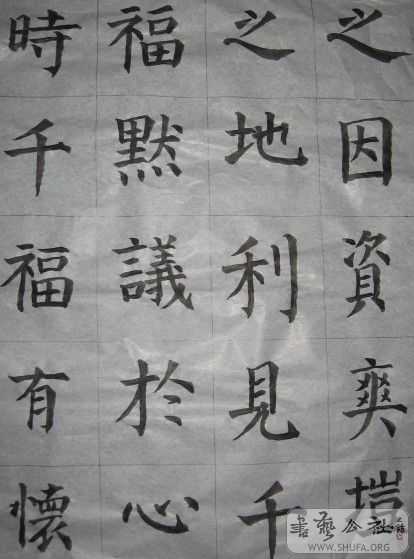 之因資爽塏
之地利見千
福默議於心
時千福有懷
書藝公社
WWW.SHUFA.ORG